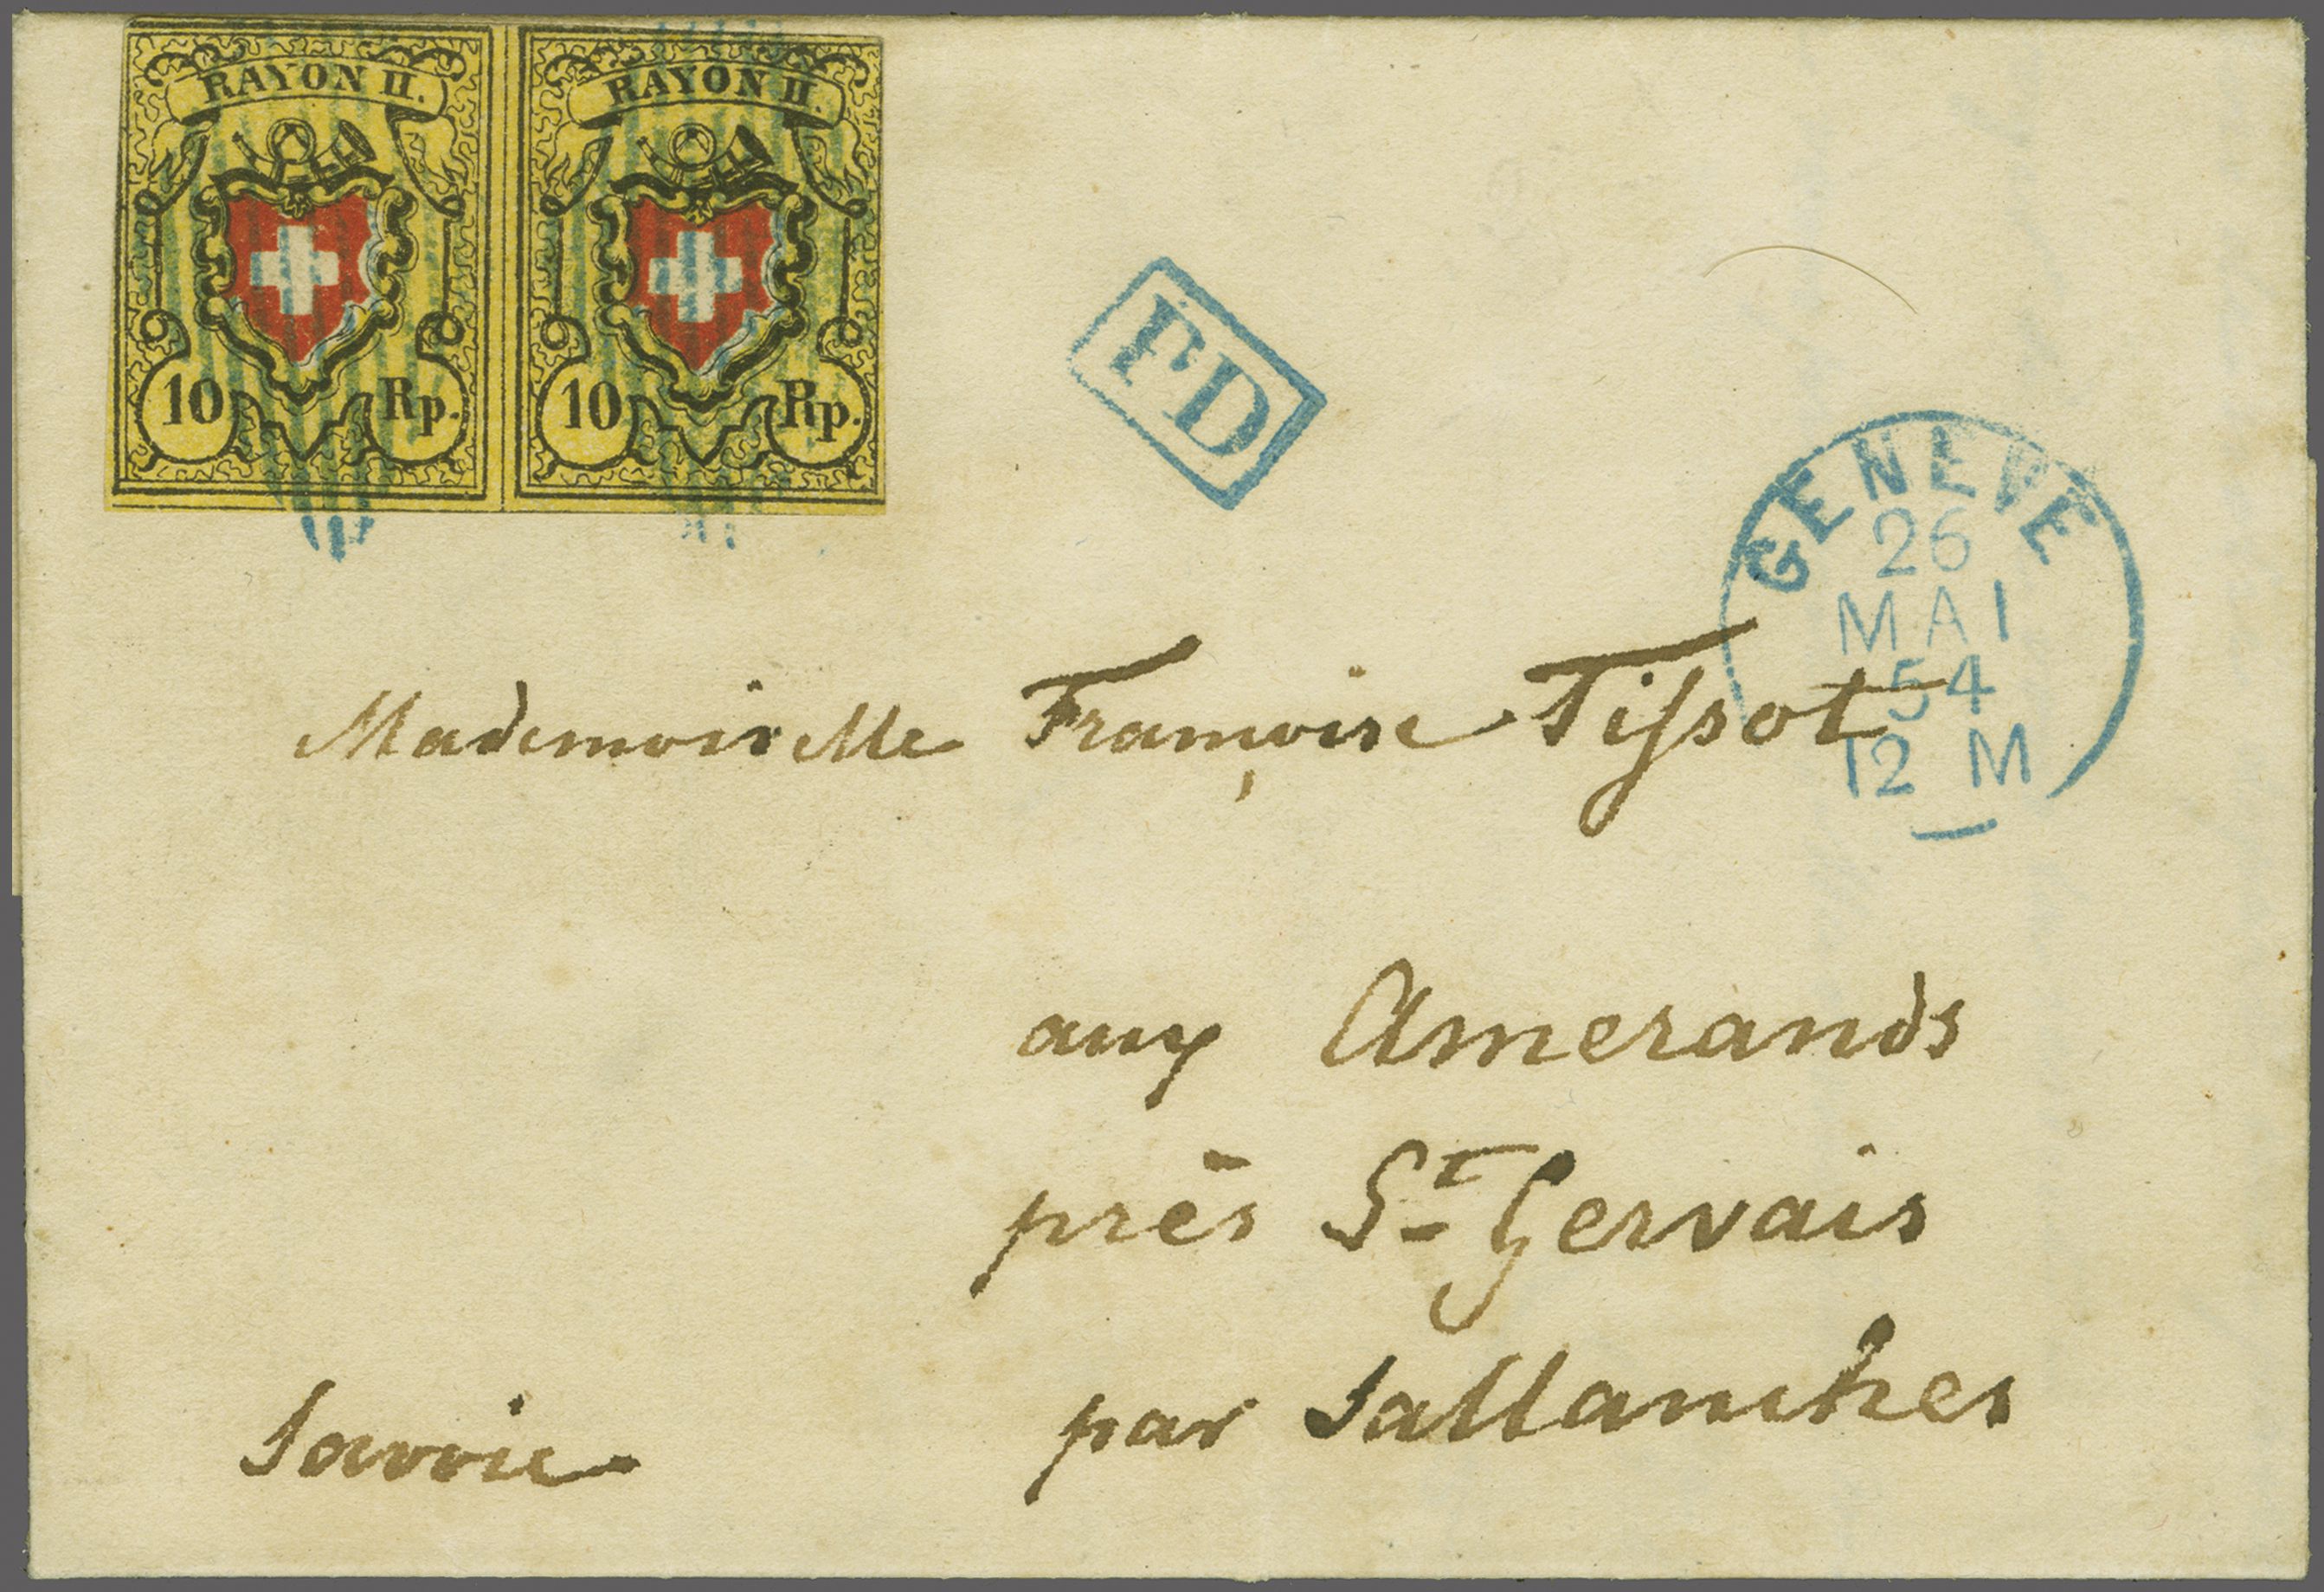 RAYON II. RAYON II.
10 Rp. 10 Rp.
PD
GENEVE
26
MAI
54
12 M
Mademoiselle Françoise Tissot
aux Amerands
près St Gervais
par Sallanches
Savoie